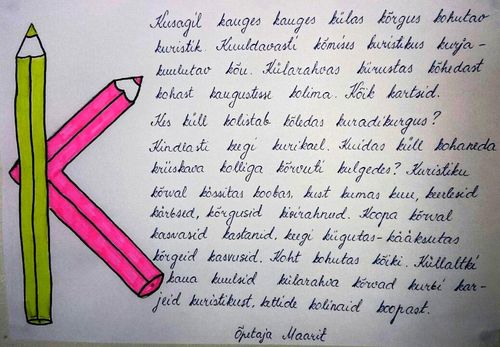 Kusagil kauges kauges külas kõrgus kohutav
kuristik. Kuuldavasti kõmises kuristikus kurja-
kuulutav kõu. Külarahvas kiirustas kõhedast
kohast kaugustesse kolima. Kõik kartsid.
Kes küll kolistab kõledas kuradikurgus?
Kindlasti keegi kurikael. Kuidas küll kohaneda
kriiskava kolliga kõrvuti kulgedes? Kuristiku
kõrval kössitas koobas, kust kumas kuu, keerlesid
kärbsed, kõrgusid kivirahnud. Koopa kõrval
kasvasid kastanid, keegi kiigutas-kääksutas
kõrgeid kasvusid. Koht kohutas kõiki. Küllaltki
kaua kuulsid külarahva kõrvad kurbi kar-
jeid kuristikust, kettide kolinaid koopast.
Õpetaja Maarit